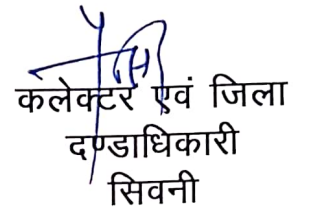 कलेक्टर एवं जिला
दण्डाधिकारी
सिवनी